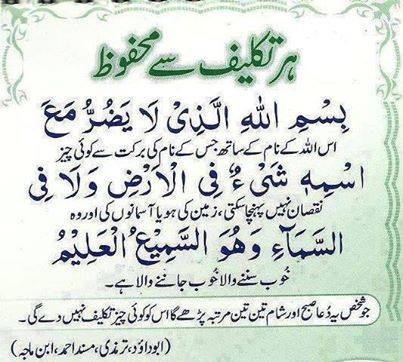 ہر تکلیف سے محفوظ
بِسْمِ اللهِ الَّذِىْ لَا يَضُرُّ مَعَ
اس اللہ کے نام کے ساتھ جس کے نام کی برکت سے کوئی چیز
اسْمِهٖ شَىْءٌ فِى الْاَرْضِ وَلَا فِى
نقصان نہیں پہنچا سکتی، زمین کی ہو یا آسمانوں کی اور وہ
السَّمَآءِ وَهُوَ السَّمِيْعُ الْعَلِيْمُ
خوب سننے والا خوب جاننے والا ہے۔
جو شخص یہ دُعا صبح اور شام تین تین مرتبہ پڑھے گا اس کو کوئی چیز تکلیف نہیں دے گی۔
(ابوداؤد، ترمذی، مسند احمد، ابن ماجہ)